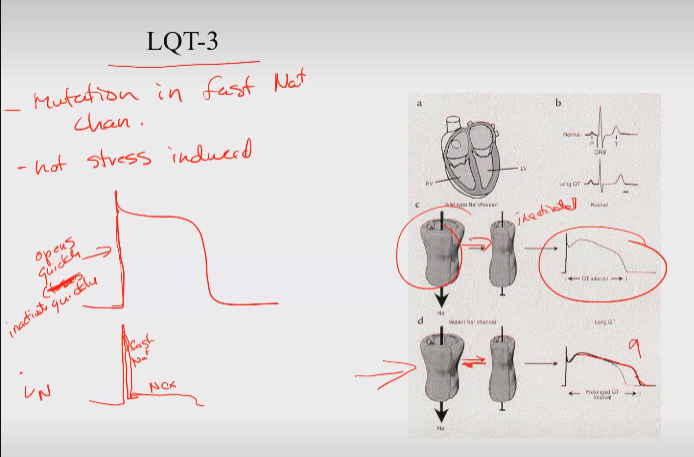 LQT-3
- Mutation in fast Na+
chan.
- not stress induced
opens
quickly
inactivates quickly
fast
Na+
iN
NCX
a
b
Normal
P
T
QRS
RV
LV
Long QT
c
Wild-type Na+ channel
Normal
inactivated
QT interval
Na+
d
Mutant Na+ channel
Long QT
Prolonged QT
interval
Na+